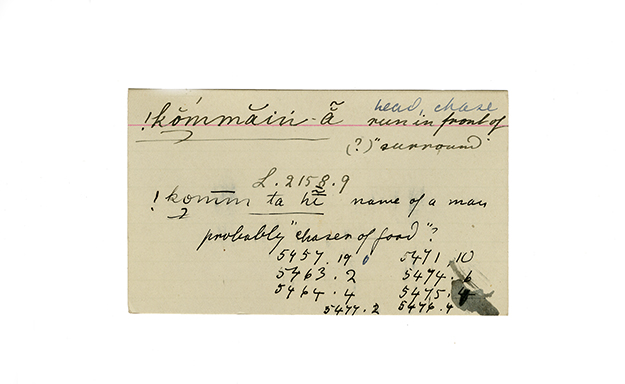 !kŏ́mmăin-ã̆ head, chase
run in front of
(?) "surround
L. 2158.9
!komm ta hĩ name of a man
probably "chaser of food"?
5457.19 5471.10
5463.2 5474.6
5464.4 5475.4
5477.2 5476.4